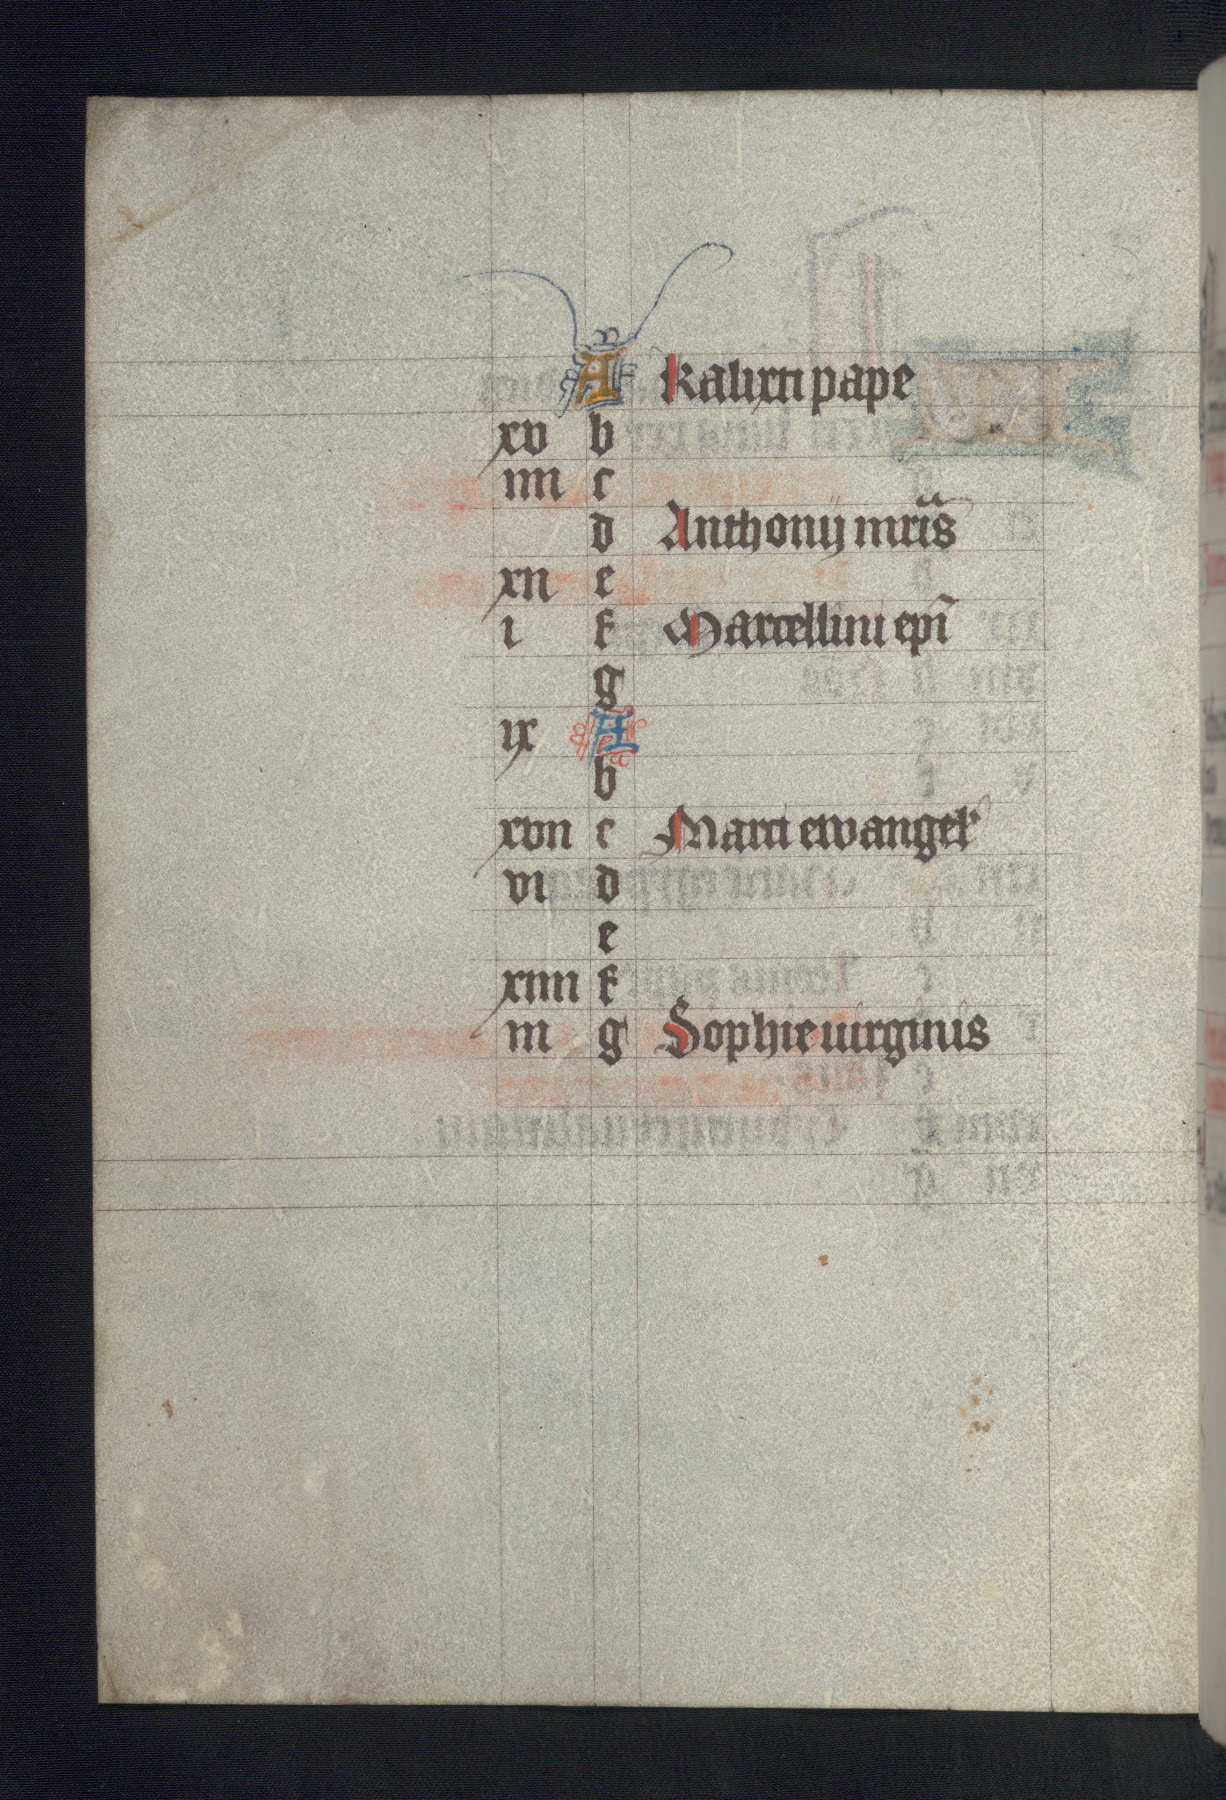 A Kalixti pape
xv b
iiii c
d Anthonij mr̄is
xii e
i f Marcellini epī
g
ix A
b
xvii c Marci ewangel'
vi d
e
xiiii f
iii g Sophie uirginis